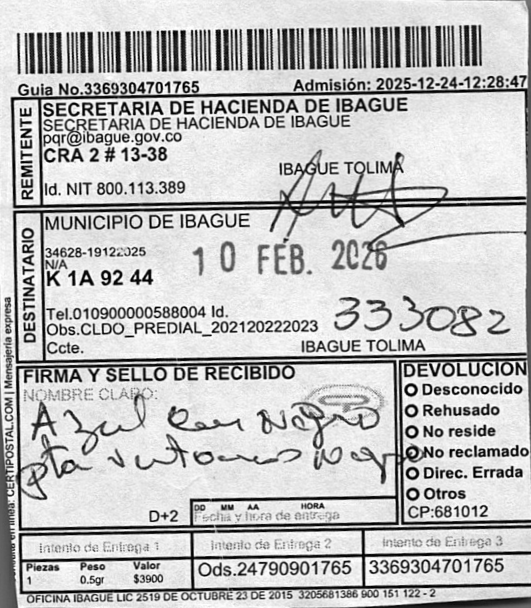 Guia No.3369304701765 Admisión: 2025-12-24-12:28:47
REMITENTE
SECRETARIA DE HACIENDA DE IBAGUE
SECRETARIA DE HACIENDA DE IBAGUE
pqr@ibague.gov.co
CRA 2 # 13-38
IBAGUE TOLIMA
Id. NIT 800.113.389
DESTINATARIO
MUNICIPIO DE IBAGUE
34628-19122025
N/A
10 FEB. 2026
K 1A 92 44
Tel.010900000588004 Id.
Obs.CLDO_PREDIAL_202120222023
333082
Ccte.
IBAGUE TOLIMA
FIRMA Y SELLO DE RECIBIDO
NOMBRE CLARO:
Azul con Negro
pta
DEVOLUCION
Desconocido
Rehusado
No reside
No reclamado
Direc. Errada
Otros
CP:681012
D+2
DD MM AA HORA
Fecha y hora de entrega
Intento de Entrega 1
Intento de Entrega 2
Intento de Entrega 3
Piezas Peso Valor
1 0.5gr $3900
Ods.24790901765
3369304701765
OFICINA IBAGUE LIC 2519 DE OCTUBRE 23 DE 2015 3205681386 900 151 122 - 2
en linea: CERTIPOSTAL.COM | Mensajería expresa